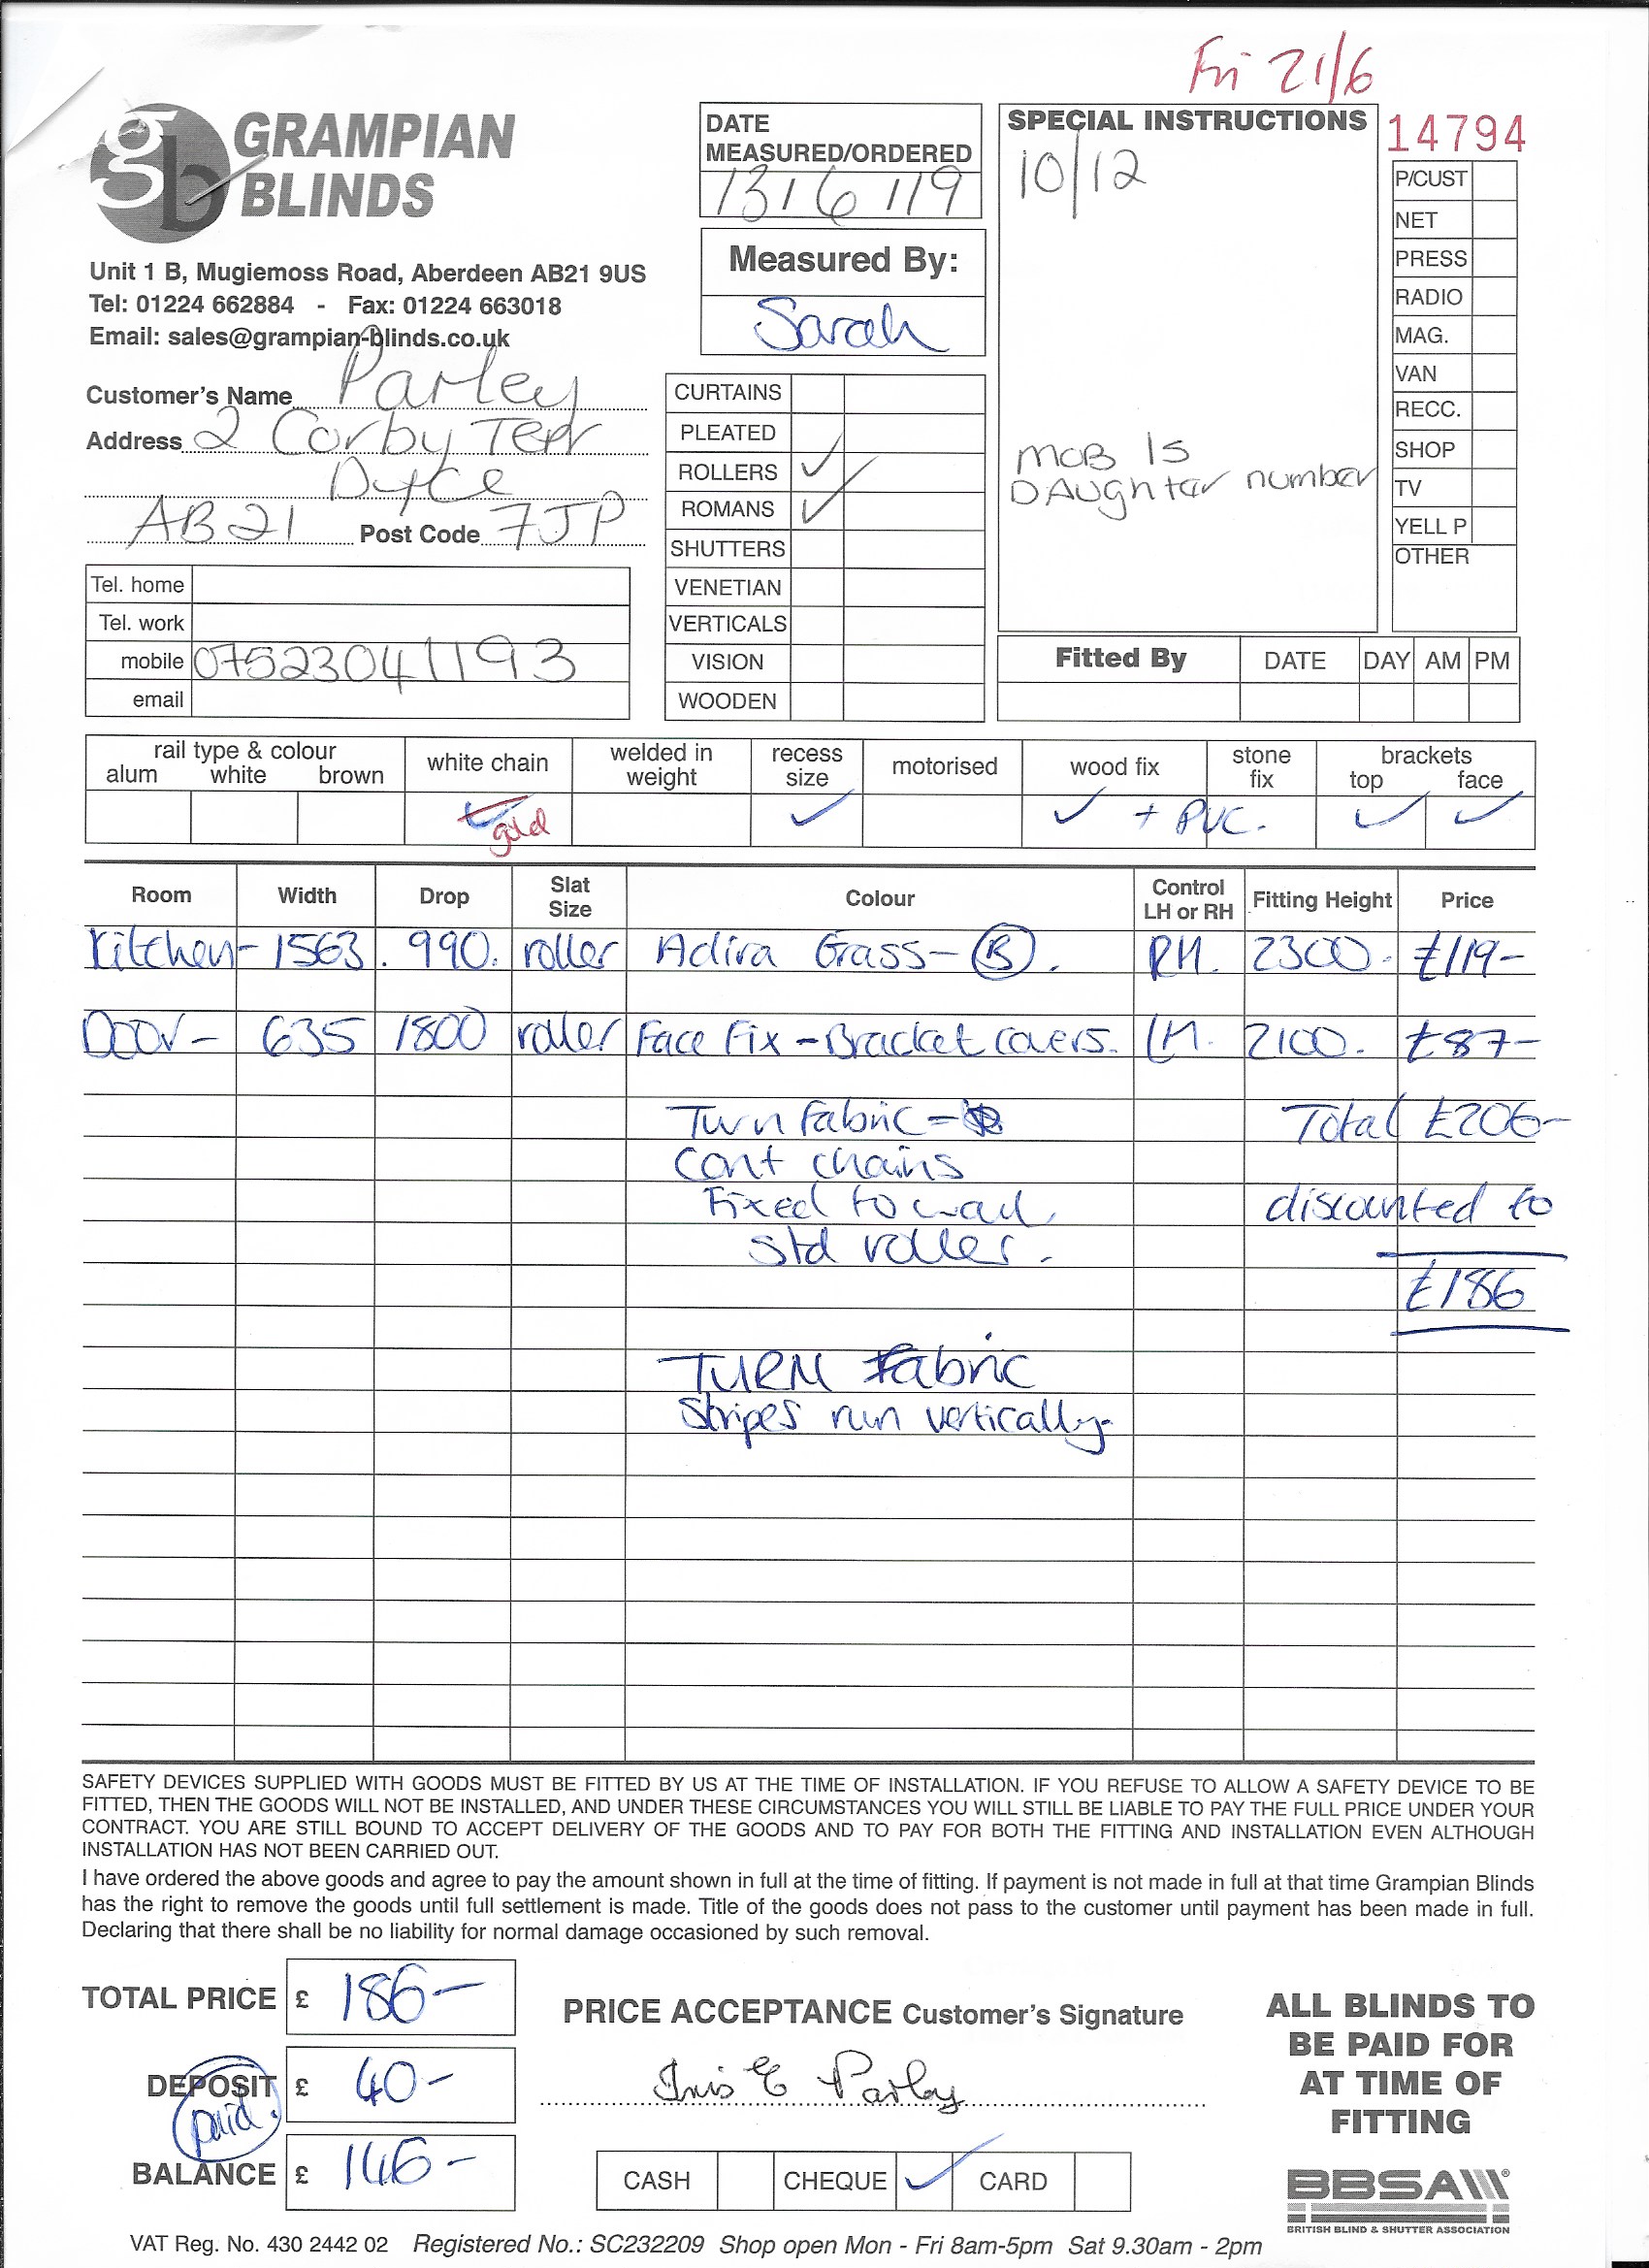 Fri 21/6
GRAMPIAN
BLINDS
gb
Unit 1 B, Mugiemoss Road, Aberdeen AB21 9US
Tel: 01224 662884 - Fax: 01224 663018
Email: sales@grampian-blinds.co.uk
Customer's Name Parley
Address 2 Corby Terr
Dyce
AB21 Post Code 7JP
Tel. home
Tel. work
mobile 07523041193
email
DATE
MEASURED/ORDERED
13/6/19
Measured By:
Sarah
CURTAINS
PLEATED
ROLLERS ✓
ROMANS ✓
SHUTTERS
VENETIAN
VERTICALS
VISION
WOODEN
SPECIAL INSTRUCTIONS
10/12
MOB IS
DAughter number
14794
P/CUST
NET
PRESS
RADIO
MAG.
VAN
RECC.
SHOP
TV
YELL P
OTHER
Fitted By DATE DAY AM PM
rail type & colour
alum white brown
white chain
gold
welded in
weight
recess
size
✓
motorised
wood fix
✓ + PVC.
stone
fix
brackets
top face
✓ ✓
Room Width Drop Slat Size Colour Control LH or RH Fitting Height Price
Kitchen- 1563. 990. roller Adira Grass- B. RH. 2300. £119-
Door- 635 1800 roller Face Fix - Bracket covers. LH. 2100. £87-
Turn Fabric - Total £206-
Cont chains
Fixed to wall, discounted to
std roller.
£186
TURN Fabric
Stripes run vertically.
SAFETY DEVICES SUPPLIED WITH GOODS MUST BE FITTED BY US AT THE TIME OF INSTALLATION. IF YOU REFUSE TO ALLOW A SAFETY DEVICE TO BE
FITTED, THEN THE GOODS WILL NOT BE INSTALLED, AND UNDER THESE CIRCUMSTANCES YOU WILL STILL BE LIABLE TO PAY THE FULL PRICE UNDER YOUR
CONTRACT. YOU ARE STILL BOUND TO ACCEPT DELIVERY OF THE GOODS AND TO PAY FOR BOTH THE FITTING AND INSTALLATION EVEN ALTHOUGH
INSTALLATION HAS NOT BEEN CARRIED OUT.
I have ordered the above goods and agree to pay the amount shown in full at the time of fitting. If payment is not made in full at that time Grampian Blinds
has the right to remove the goods until full settlement is made. Title of the goods does not pass to the customer until payment has been made in full.
Declaring that there shall be no liability for normal damage occasioned by such removal.
TOTAL PRICE £ 186-
DEPOSIT £ 40-
paid.
BALANCE £ 146-
PRICE ACCEPTANCE Customer's Signature
Iris E Parley
CASH CHEQUE ✓ CARD
ALL BLINDS TO
BE PAID FOR
AT TIME OF
FITTING
BBSA
BRITISH BLIND & SHUTTER ASSOCIATION
VAT Reg. No. 430 2442 02 Registered No.: SC232209 Shop open Mon - Fri 8am-5pm Sat 9.30am - 2pm